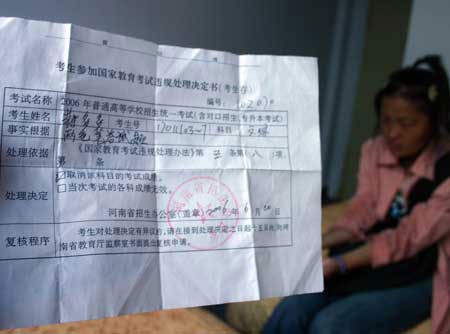 考生参加国家教育考试违规处理决定书(考生存)
编号:
考试名称 2006年普通高等学校招生统一考试(含对口招生、专升本考试)
考生姓名 考生号 科目
事实根据
处理依据 《国家教育考试违规处理办法》第 条第(八)项、
第 条
处理决定 取消该科目的考试成绩。
□当次考试的各科成绩无效。
河南省招生办公室(盖章) 2006年6月20日
复核程序 考生对处理决定有异议的,请在接到处理决定之日起十五日内,向河
南省教育厅监察室书面提出复核申请。